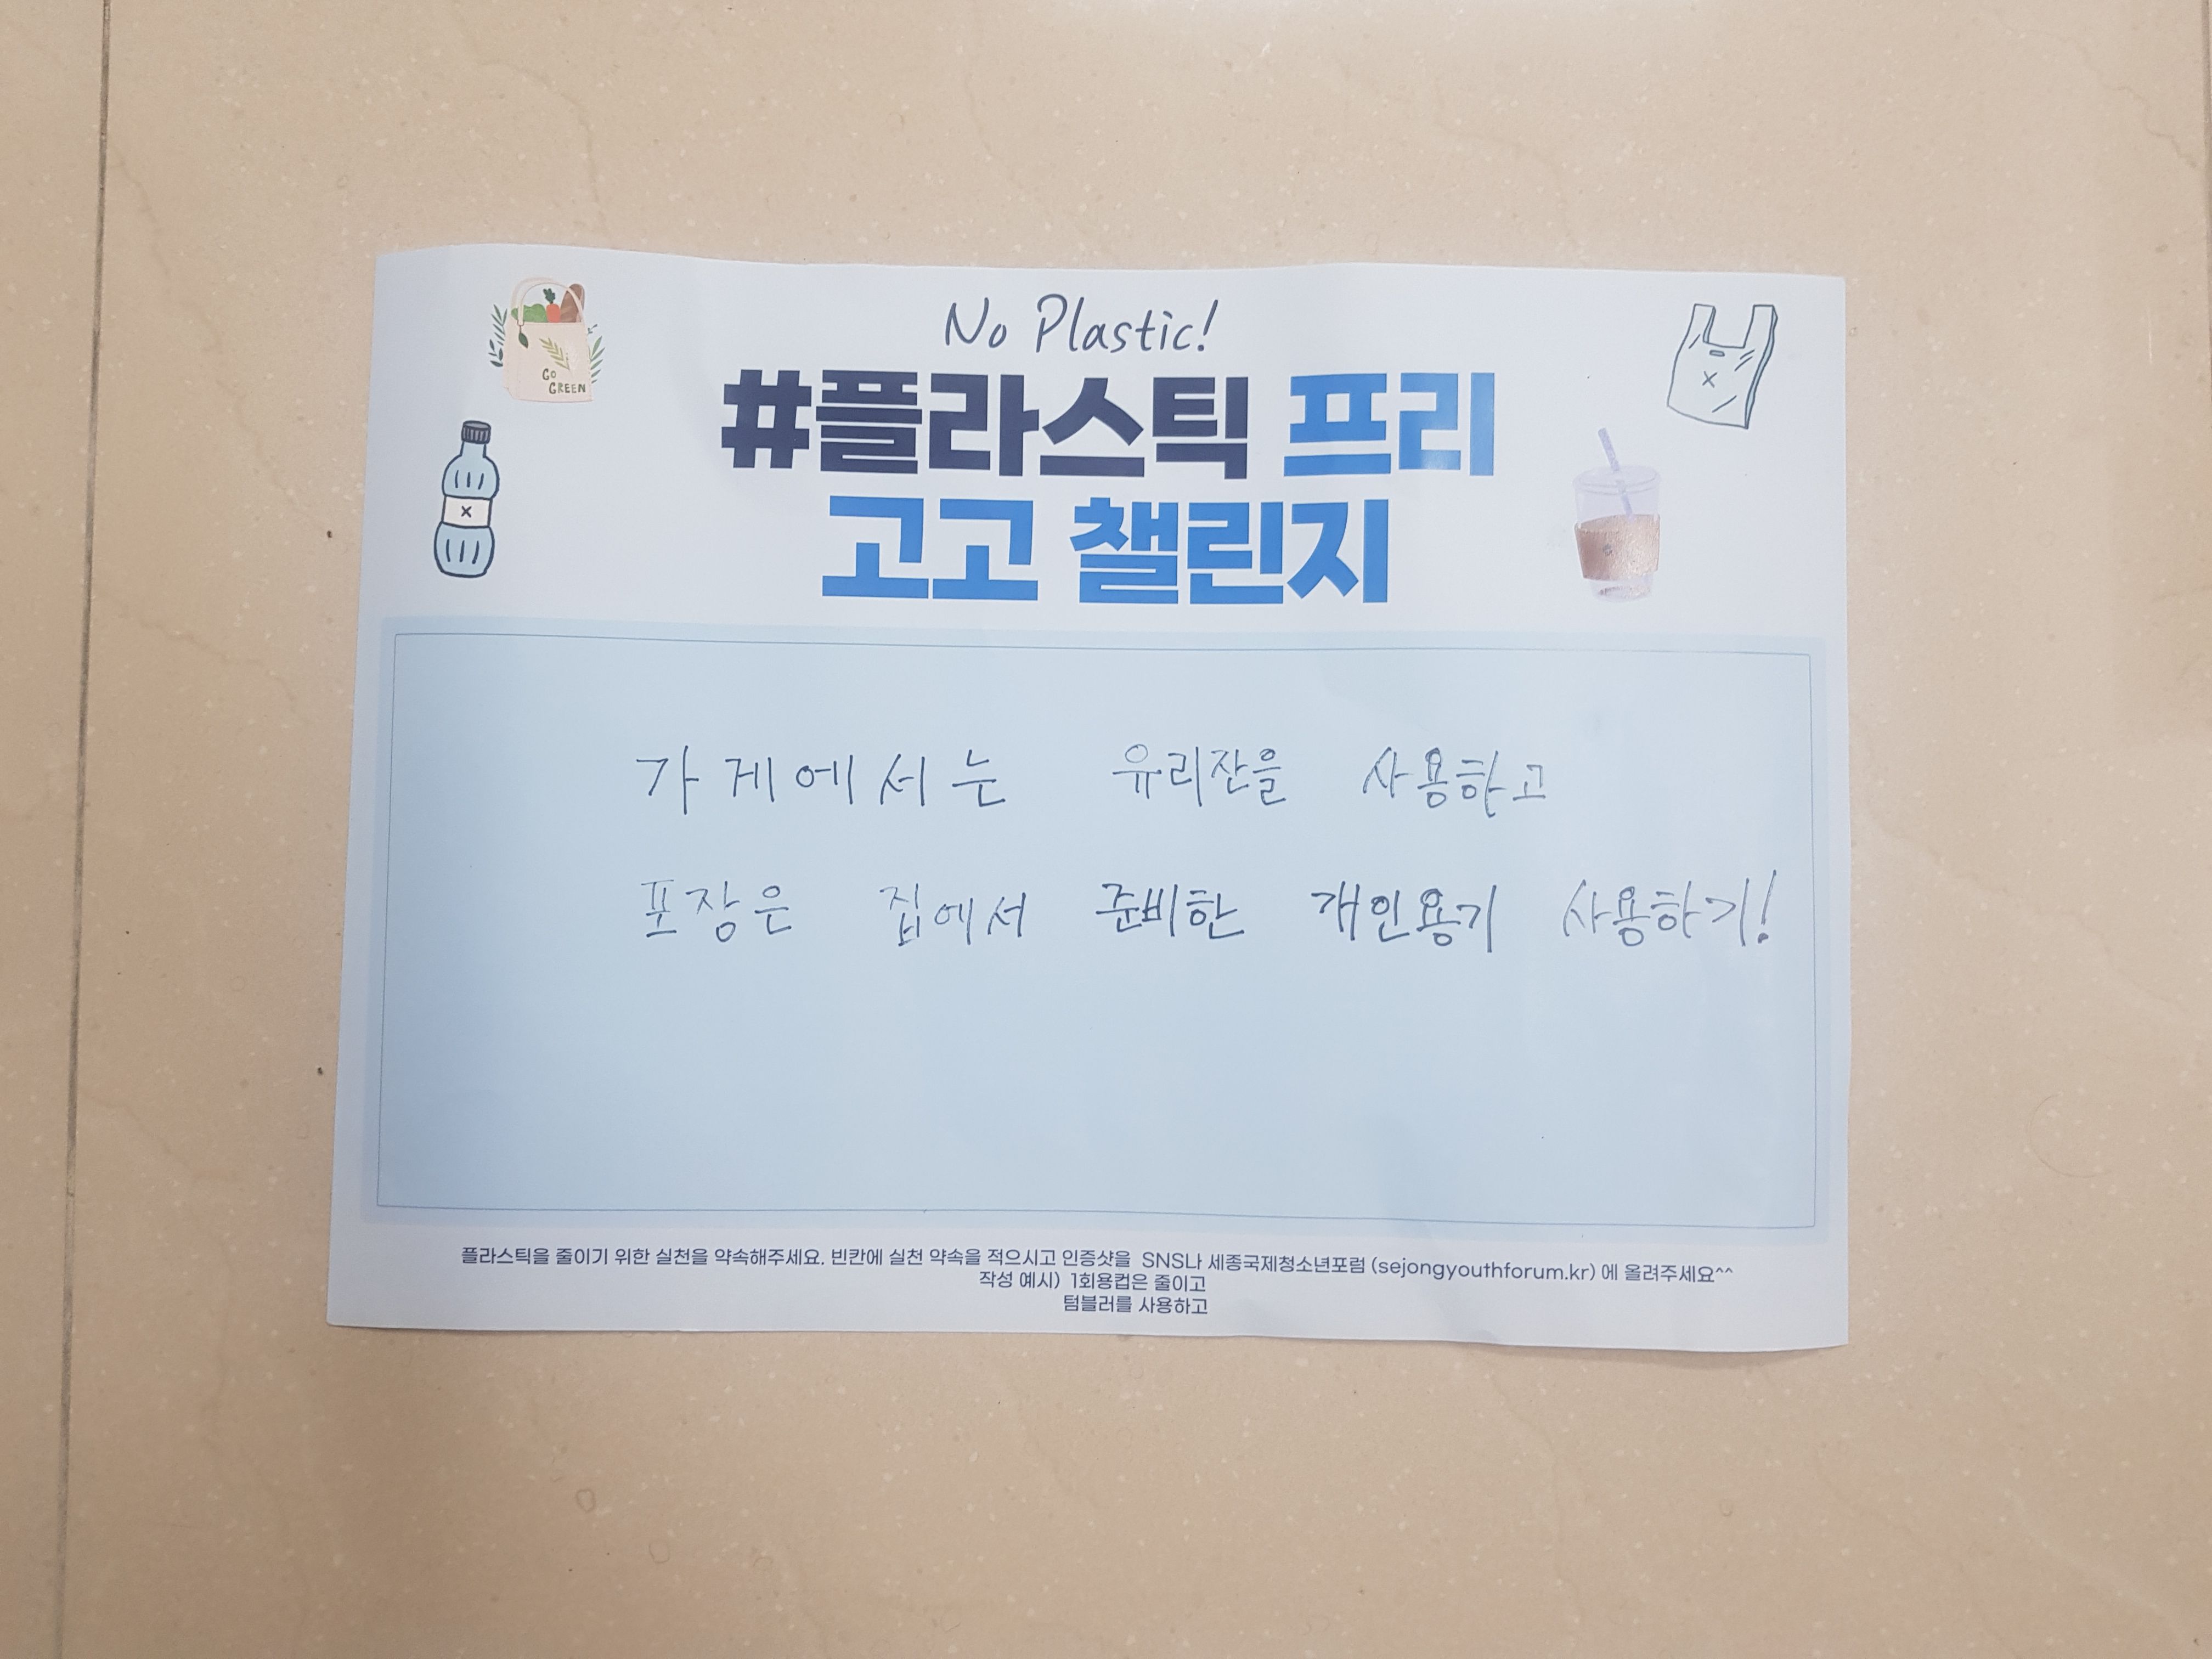 No Plastic!
#플라스틱 프리
고고 챌린지
GO
GREEN
가게에서는 유리잔을 사용하고
포장은 집에서 준비한 개인용기 사용하기!
플라스틱을 줄이기 위한 실천을 약속해주세요. 빈칸에 실천 약속을 적으시고 인증샷을 SNS나 세종국제청소년포럼 (sejongyouthforum.kr) 에 올려주세요^^
작성 예시) 1회용컵은 줄이고
텀블러를 사용하고